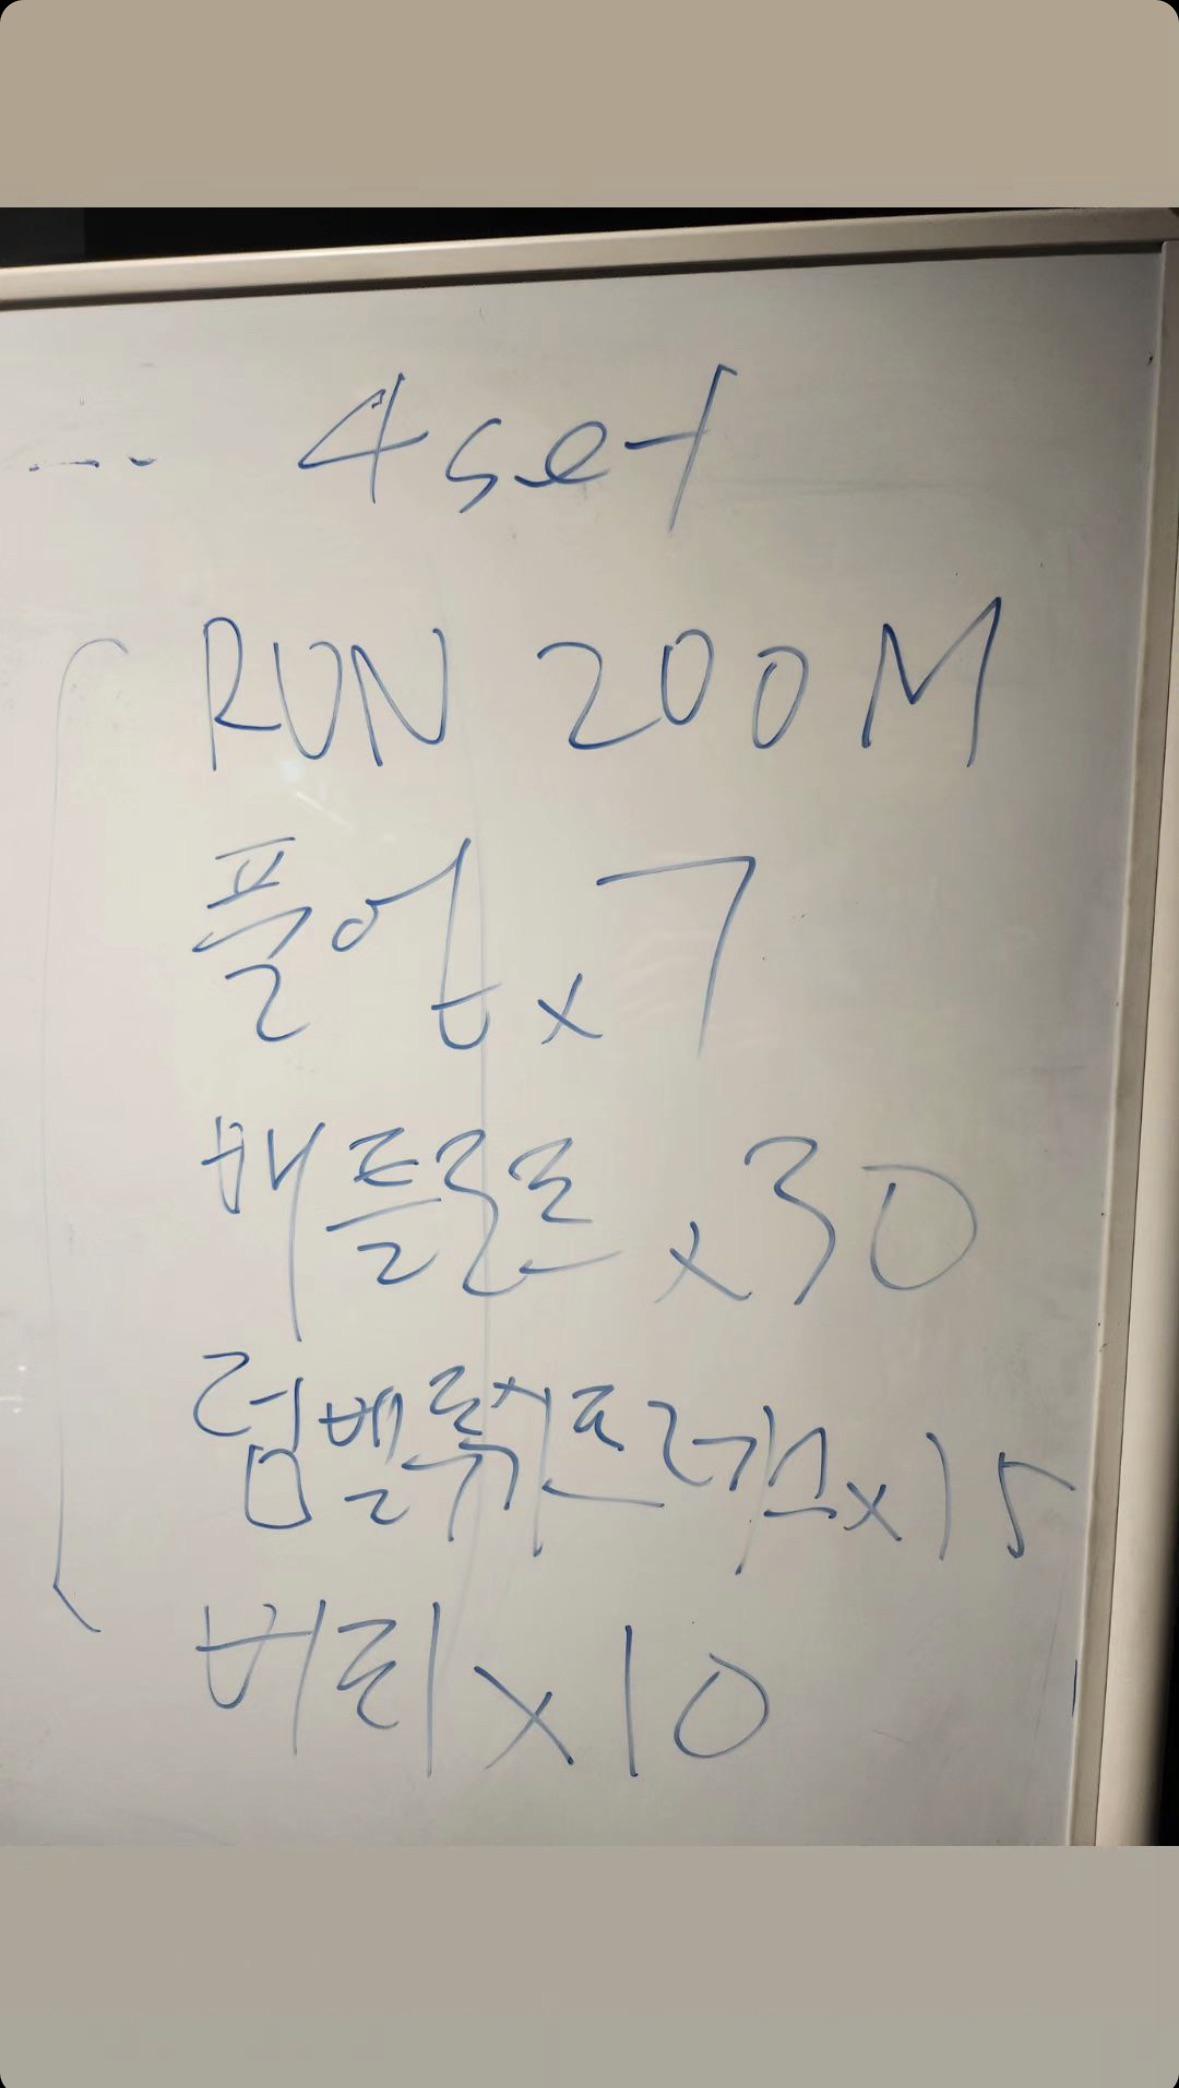 4set
RUN 200M
풀업x7
배틀로프x30
덤벨푸쉬프레스x15
버피x10